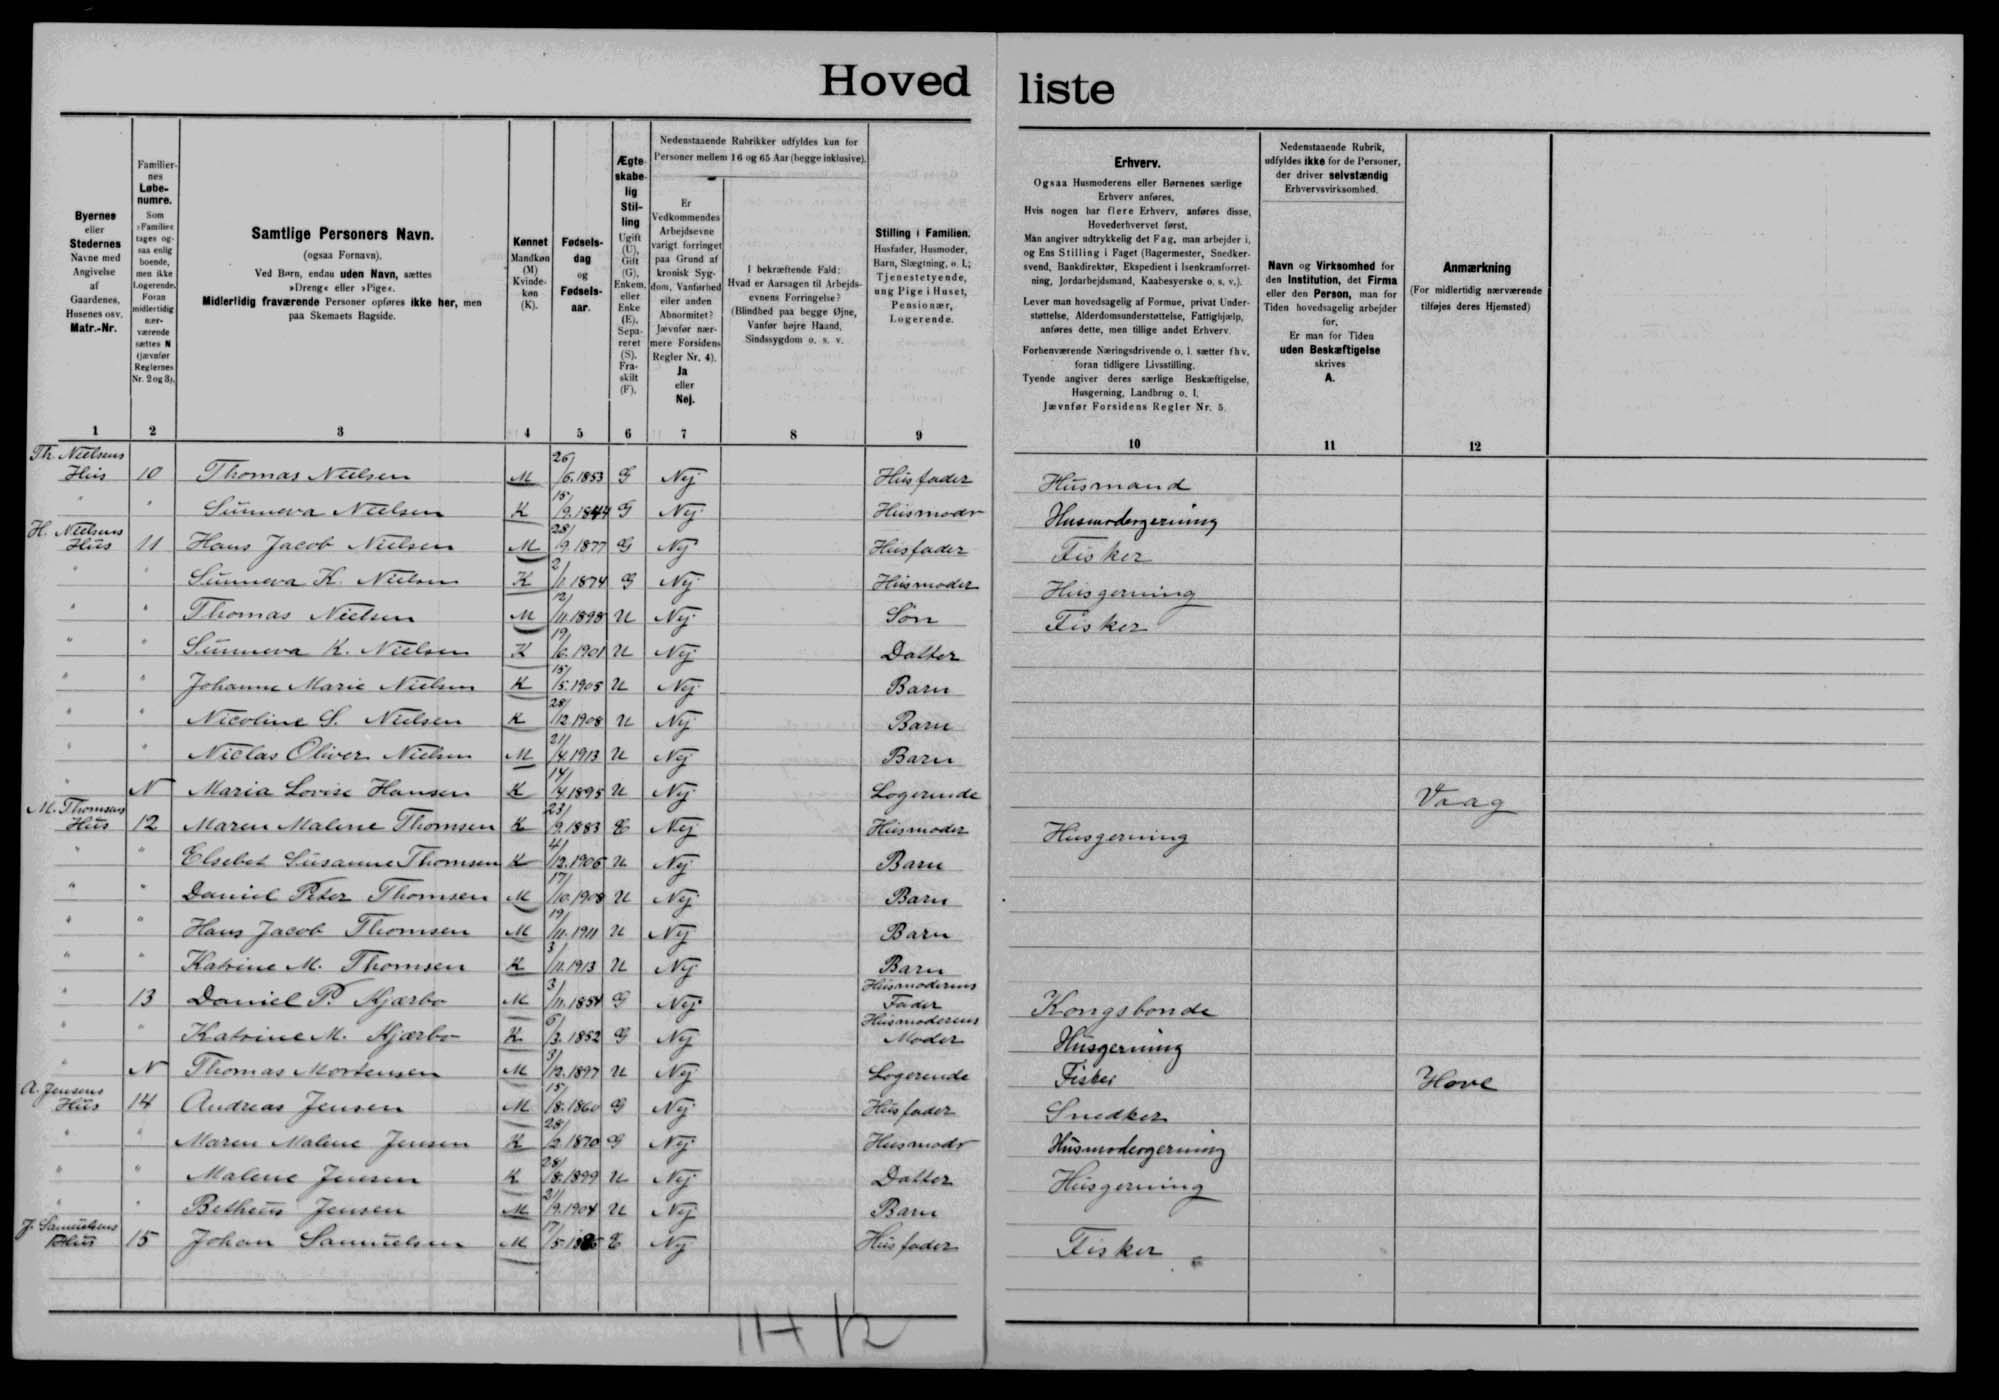 Hoved liste
Byernes
eller
Stedernes
Navne med
Angivelse
af
Gaardenes,
Husenes osv.
Matr.-Nr.
Familier-
nes
Løbe-
numre.
Som
»Familie«
tages og-
saa enlig
boende,
men ikke
Logerende.
Foran
midlertidig
nær-
værende
sættes N
(jævnfør
Reglernes
Nr. 2 og 3).
Samtlige Personers Navn.
(ogsaa Fornavn).
Ved Børn, endnu uden Navn, sættes
»Dreng« eller »Pige«.
Midlertidig fraværende Personer opføres ikke her, men
paa Skemaets Bagside.
Kønnet
Mandkøn
(M)
Kvinde-
køn
(K).
Fødsels-
dag
og
Fødsels-
aar.
Ægte-
skabe-
lig
Stil-
ling
Ugift
(U),
Gift
(G),
Enkem.
eller
Enke
(E),
Sepa-
reret
(S).
Fra-
skilt
(F).
Nedenstaaende Rubrikker udfyldes kun for
Personer mellem 16 og 65 Aar (begge inklusive).
Er
Vedkommendes
Arbejdsevne
varigt forringet
paa Grund af
kronisk Syg-
dom, Vanførhed
eller anden
Abnormitet?
Jævnfør nær-
mere Forsidens
Regler Nr. 4).
Ja
eller
Nej.
I bekræftende Fald:
Hvad er Aarsagen til Arbejds-
evnens Forringelse?
(Blindhed paa begge Øjne,
Vanfør højre Haand,
Sindssygdom o. s. v.
Stilling i Familien.
Husfader, Husmoder,
Barn, Slægtning, o. l.;
Tjenestetyende,
ung Pige i Huset,
Pensionær,
Logerende.
Erhverv.
Ogsaa Husmoderens eller Børnenes særlige
Erhverv anføres.
Hvis nogen har flere Erhverv, anføres disse,
Hovederhvervet først.
Man angiver udtrykkelig det Fag, man arbejder i,
og Ens Stilling i Faget (Bagermester, Snedker-
svend, Bankdirektør, Ekspedient i Isenkramforret-
ning, Jordarbejdsmand, Kaabesyerske o. s. v.).
Lever man hovedsagelig af Formue, privat Under-
støttelse, Alderdomsunderstøttelse, Fattighjælp,
anføres dette, men tillige andet Erhverv.
Forhenværende Næringsdrivende o. l. sætter fhv.
foran tidligere Livsstilling.
Tyende angiver deres særlige Beskæftigelse,
Husgerning, Landbrug o. l.
Jævnfør Forsidens Regler Nr. 5.
Nedenstaaende Rubrik,
udfyldes ikke for de Personer,
der driver selvstændig
Erhvervsvirksomhed.
Navn og Virksomhed for
den Institution, det Firma
eller den Person, man for
Tiden hovedsagelig arbejder
for.
Er man for Tiden
uden Beskæftigelse
skrives
A.
Anmærkning
(For midlertidig nærværende
tilføjes deres Hjemsted)
1 2 3 4 5 6 7 8 9 10 11 12
Th. Nielsens
Hus 10 Thomas Nielsen M 26/6.1853 G Nej Husfader Husmand
" " Sunneva Nielsen K 15/9.1844 G Nej Husmodr Husmodergerning
H. Nielsens
Hus 11 Hans Jacob Nielsen M 28/9.1877 G Nej Husfader Fisker
" " Sunneva K. Nielsen K 2/1.1874 G Nej Husmoder Husgerning
" " Thomas Nielsen M 12/11.1898 U Nej Søn Fisker
" " Sunneva K. Nielsen K 19/6.1901 U Nej Datter
" " Johanne Marie Nielsen K 15/5.1905 U Nej Barn
" " Nicoline S. Nielsen K 28/12.1908 U Nej Barn
" " Niclas Oliver Nielsen M 21/4.1913 U Nej Barn
" N Maria Lovise Hansen K 14/4.1895 U Nej Logerende Vaag
M. Thomsens
Hus 12 Maren Malene Thomsen K 23/9.1883 E Nej Husmoder Husgerning
" " Elsebet Susanne Thomsen K 4/12.1906 U Nej Barn
" " Daniel Peter Thomsen M 17/10.1908 U Nej Barn
" " Hans Jacob Thomsen M 19/11.1911 U Nej Barn
" " Katrine M. Thomsen K 3/11.1913 U Nej Barn
" 13 Daniel P. Kjærbo M 3/11.1854 G Nej Husmoderens Fader Kongsbonde
" " Katrine M. Kjærbo K 6/3.1852 G Nej Husmoderens Moder Husgerning
" N Thomas Mortensen M 3/12.1897 U Nej Logerende Fisker Hove
A. Jensens
Hus 14 Andreas Jensen M 15/8.1860 G Nej Husfader Snedker
" " Maren Malene Jensen K 28/2.1870 G Nej Husmodr Husmodergerning
" " Malene Jensen K 28/8.1899 U Nej Datter Husgerning
" " Betheus Jensen M 21/9.1904 U Nej Barn
J. Samuelsens
Hus 15 Johan Samuelsen M 17/5 E Nej Husfader Fisker
11+12